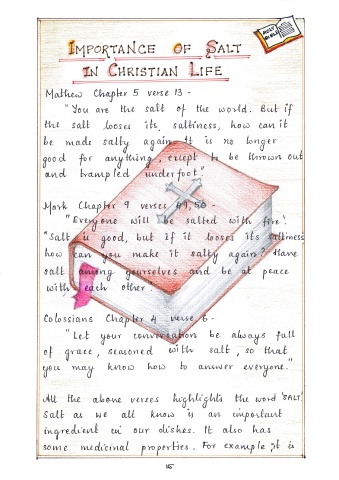 HOLY BIBLE
IMPORTANCE OF SALT
IN CHRISTIAN LIFE
Mathew Chapter 5 verse 13 -
"You are the salt of the world. But if
the salt looses its saltiness, how can it
be made salty again? It is no longer
good for anything, except to be thrown out
and trampled underfoot"
Mark Chapter 9 verses 49,50 -
"Everyone will be salted with fire".
"Salt is good, but if it looses its saltiness
how can you make it salty again? Have
salt among yourselves and be at peace
with each other.
Colossians Chapter 4 verse 6 -
"Let your conversation be always full
of grace, seasoned with salt, so that
you may know how to answer everyone."
All the above verses highlights the word 'SALT'.
Salt as we all know is an important
ingredient in our dishes. It also has
some medicinal properties. For example, it is
15